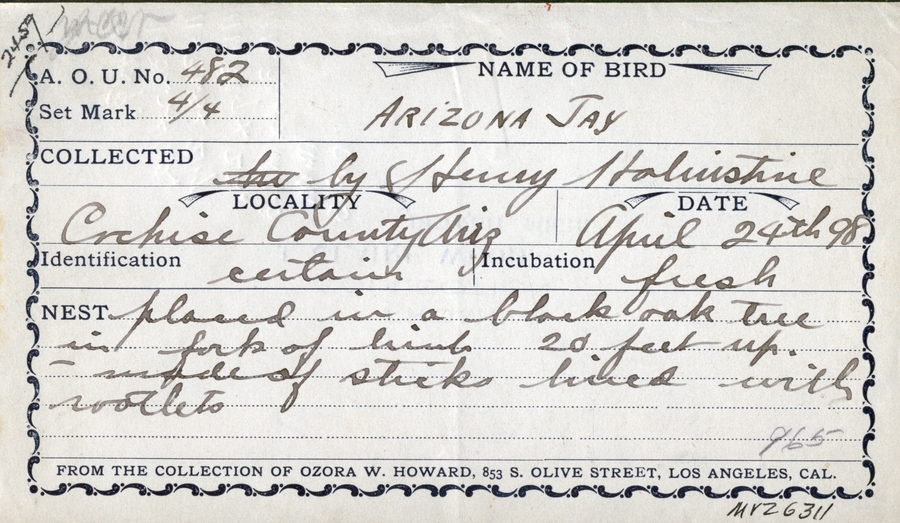 2459
A. O. U. No. 482
NAME OF BIRD
Set Mark 4/4
ARIZONA JAY
COLLECTED by Henry Halinstine
LOCALITY
DATE
Cochise County Ariz
April 24th 98
Identification certain
Incubation fresh
NEST placed in a black oak tree
in fork of limb 20 feet up.
- made of sticks lined with
rootlets
965
FROM THE COLLECTION OF OZORA W. HOWARD, 853 S. OLIVE STREET, LOS ANGELES, CAL.
MVZ 6311